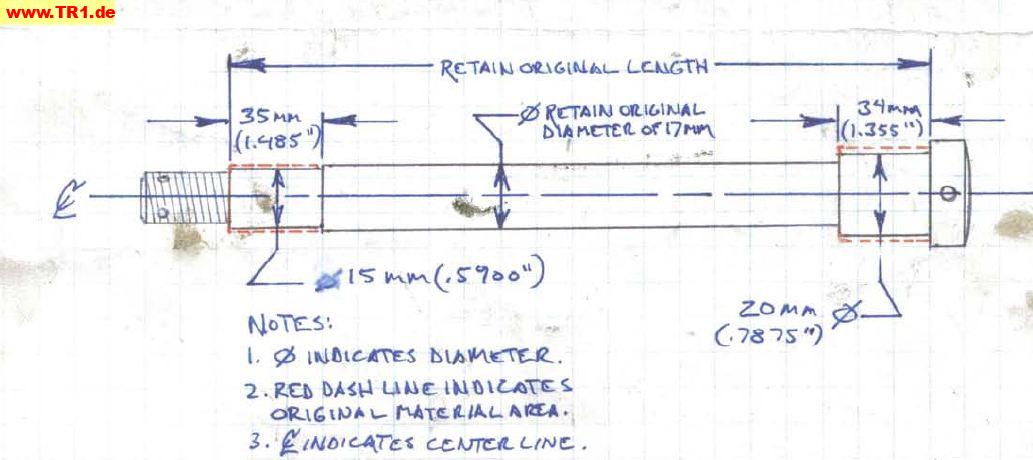 www.TR1.de
RETAIN ORIGINAL LENGTH
35mm
(1.485")
Ø RETAIN ORIGINAL
DIAMETER OF 17MM
34mm
(1.355")
℄
Ø15mm (.5900")
20mm Ø
(.7875")
NOTES:
1. Ø INDICATES DIAMETER.
2. RED DASH LINE INDICATES
ORIGINAL MATERIAL AREA.
3. ℄ INDICATES CENTER LINE.